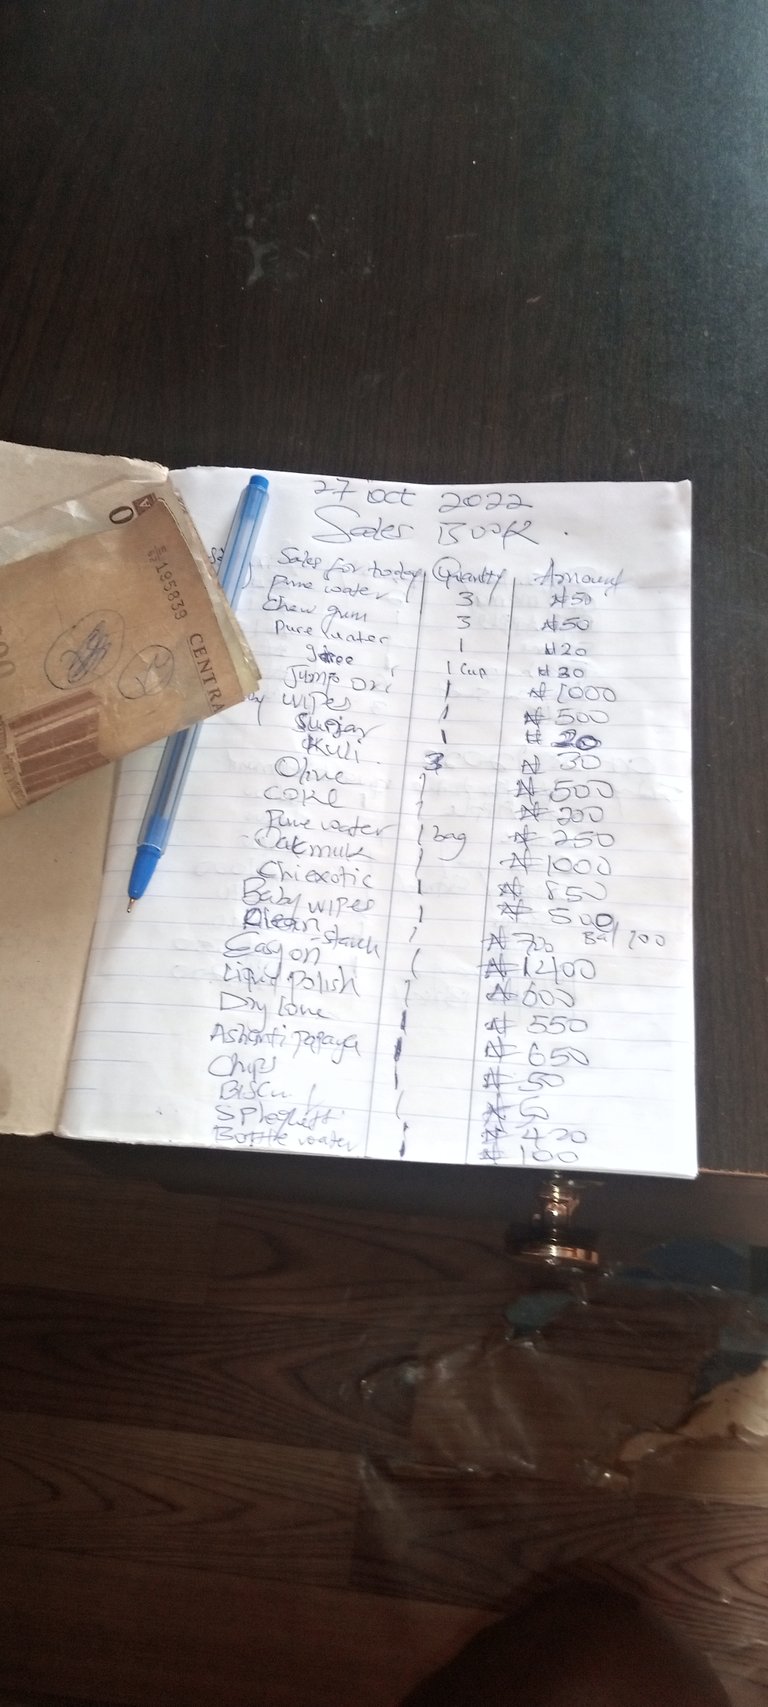 27 Oct 2022
Sales Book
Sales for today Quantity Amount
Pure water 3 ₦50
Chew gum 3 ₦50
Pure water 1 ₦20
1 Cup ₦30
Jumbo 1 ₦1000
wipes 1 ₦500
1 ₦20
Kuli 3 ₦30
Olive 1 ₦500
Coke 1 ₦200
Pure water 1 bag ₦250
Oakmilk 1 ₦1000
Chi exotic 1 ₦850
Baby wipes 1 ₦500
Klean starch 1 ₦700 Bal 200
Easy on 1 ₦1400
Liquid polish 1 ₦600
Dry 1 ₦550
Ashanti papaya 1 ₦650
Chips 1 ₦50
1 ₦50
1 ₦420
Bottle water 1 ₦100
0 A
195839
CENTRA